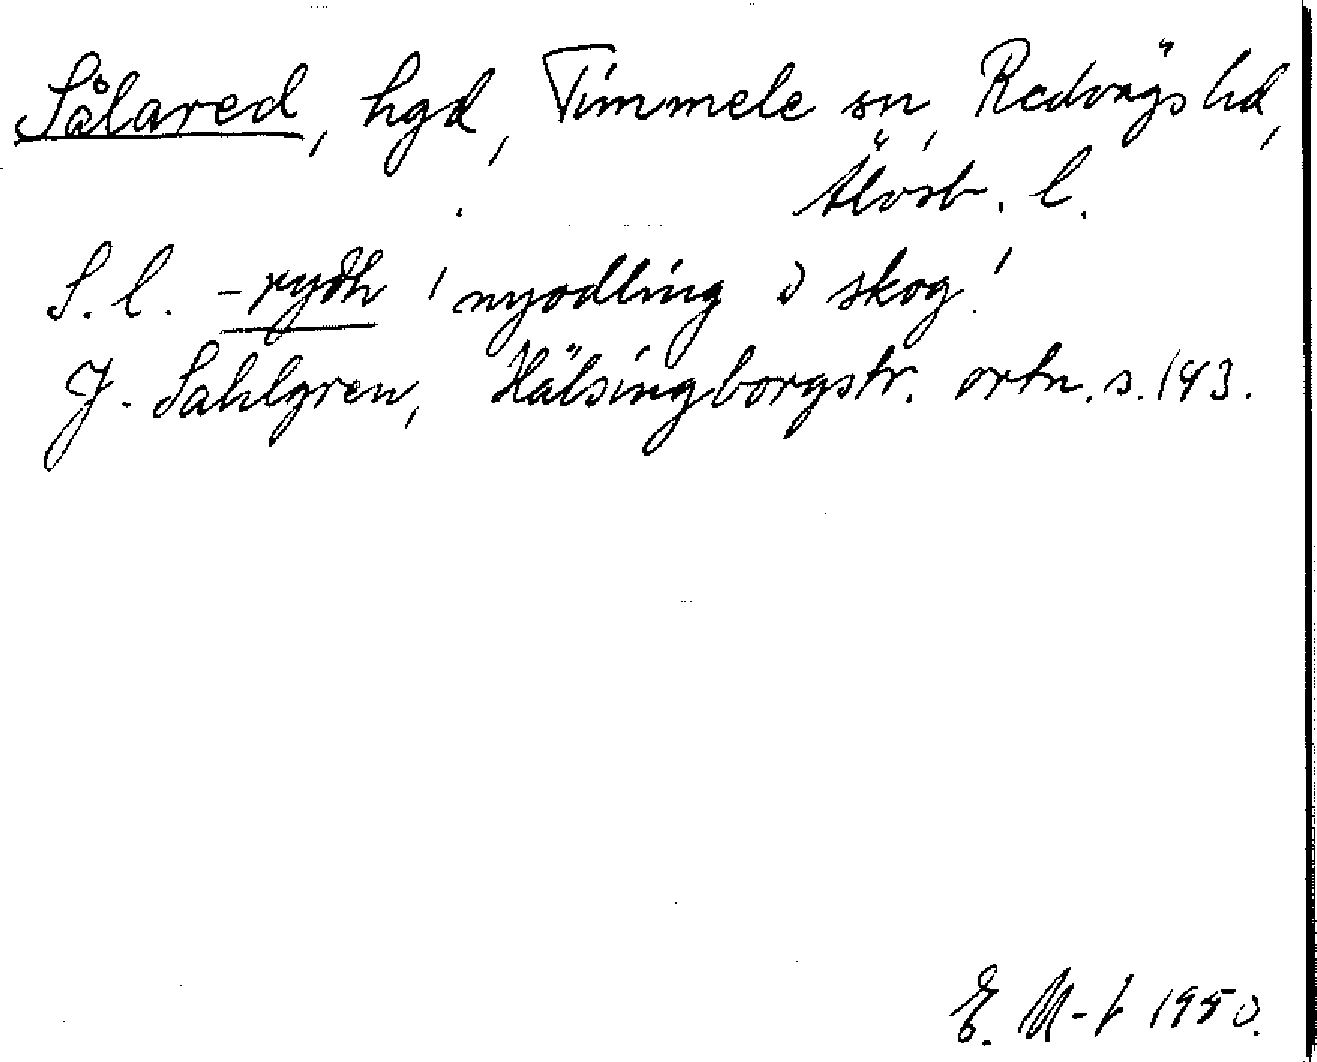 Sålared, hgd, Timmele sn, Redvägs hd,
Älvsb. l.
S.l. -rydh 'nyodling i skog'
J. Sahlgren, Hälsingborgstr. ortn. s. 143.
E. M-t 1950.